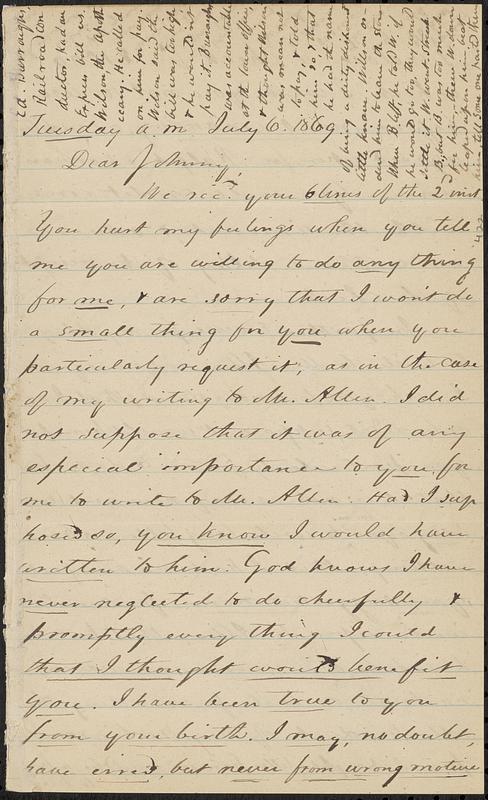 Tuesday a.m July 6. 1869
Dear Johnny,
We rec.d your 6 lines of the 2 inst
You hurt my feelings when you tell
me you are willing to do any thing
for me, & are sorry that I won't do
a small thing for you when you
particularly request it, as in the case
of my writing to Mr. Allen. I did
not suppose that it was of any
especial importance to you for
me to write to Mr. Allen. Had I sup
posed so, you know I would have
written to him. God knows I have
never neglected to do cheerfully &
promptly every thing I could
that I thought would benefit
you. I have been true to you
from your birth. I may, no doubt,
have erred, but never from wrong motive
Ed. Burroughs,
Railroad Con
ductor had an
Express bill vs.
Wilson, the Apoth
ecary. He called
on him for pay.
Wilson said the
bill was too high
& he would not
pay it. Burroughs
was accountable
at the town office,
& thought Wilson
was mean not
to pay, & told
him so, & that
he had the name
of being a dirty, dishonest
little knave. Wilson or-
dered him to leave the store
When B. left he told W. if
he would go too, they would
settle it. W. went. Struck
B, but B. was too much
for him, threw W. down
leaped upon him & beat
him till some one parted them